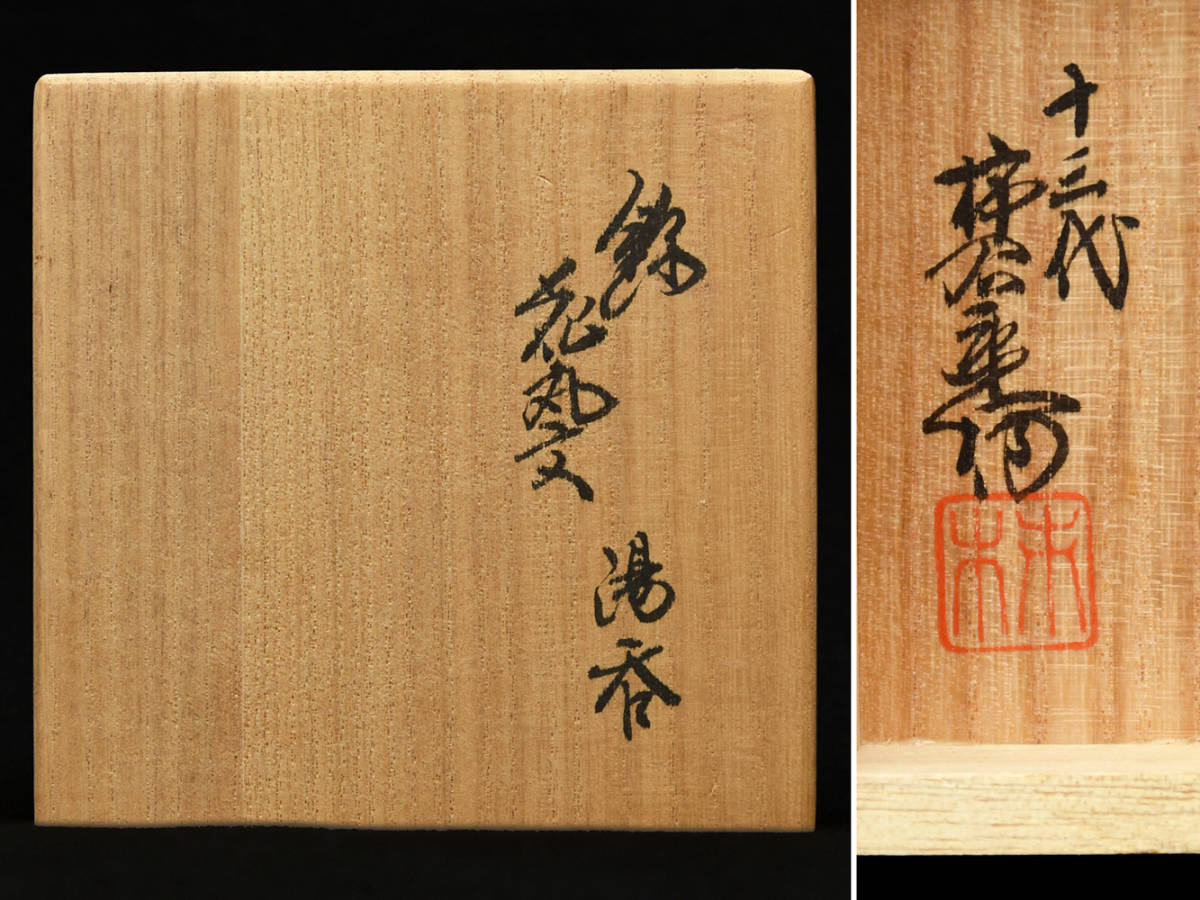 錦
花丸文
湯呑
十三代
柿右衛門